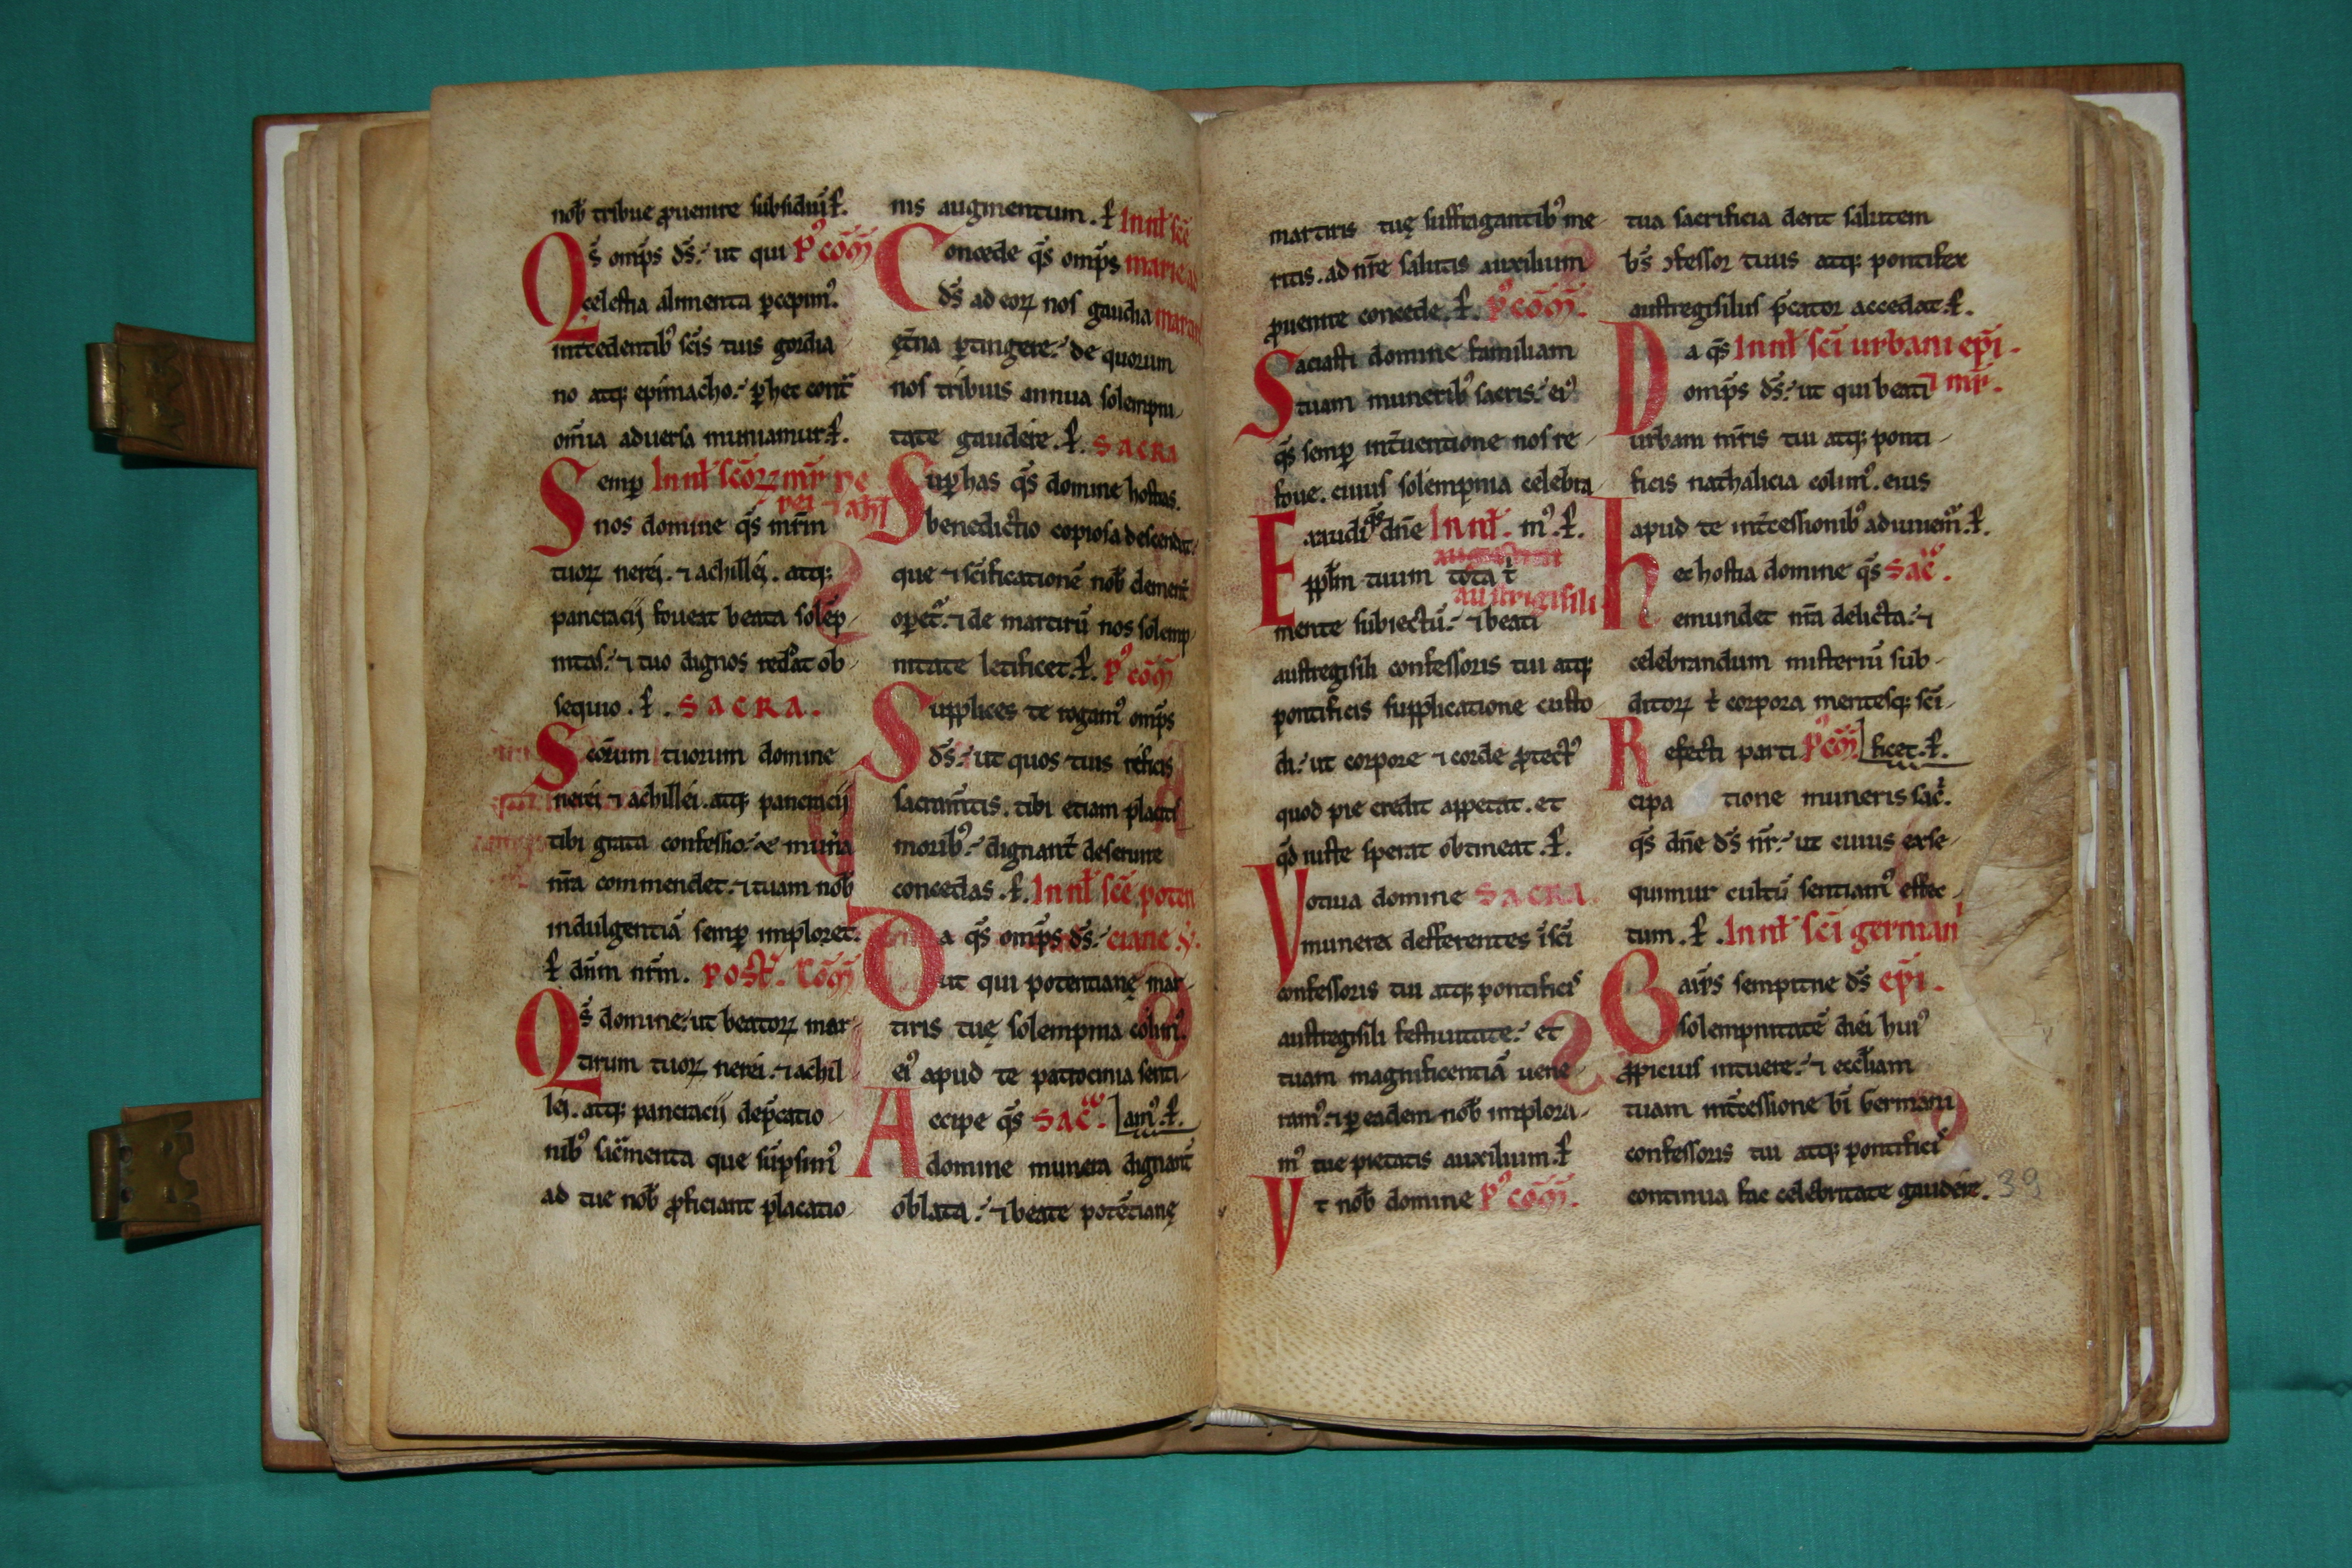 nob̄ tribue ꝓuenire subsidiū. ꝑ.
Q̄s omp̄s ds̄. ut qui Pꝰ cōm̄
celestia alimenta ꝑcepimꝰ.
int̄cedentibꝰ sc̄is tuis gordia
no atq; epimacho. ꝑ hec cont̄
om̄ia aduersa muniamur. ꝑ.
Semꝑ In nat̄ sc̄oꝝ mr̄
nos domine q̄s mr̄m
tuoꝝ nerei. ⁊ achillei. atq;
pancracij foueat beata solēp
nitas. ⁊ tuo dignos reddat ob
sequio. ꝑ. SACRA.
Sc̄orum tuorum domine
nerei ⁊ achillei. atq; pancracij
tibi grata confessio. ⁊ munīa
nr̄a commendet. ⁊ tuam nob̄
indulgentiā semꝑ imploret.
ꝑ dn̄m nr̄m. Post. Cōm̄
Q̄s domine. ut beatoꝝ mar
tirum tuoꝝ nerei. ⁊ achil
lei. atq; pancracij dep̄catio
nibꝰ sac̄menta que sūpsimꝰ
ad tue nob̄ ꝓficiant placatio
nis augmentum. ꝑ In nat̄ sc̄e
Concede q̄s omp̄s marie ad
ds̄ ad eoꝝ nos gaudia mar
et̄na ꝑtingere. de quorum
nos tribuis annua solempni
tate gaudere. ꝑ. SACRA
Suꝑ has q̄s domine hostias.
benedictio copiosa descendat.
que ⁊ sc̄ificationē nob̄ clement̄
oꝑet̄. ⁊ de martirū nos solemp
nitate letificet. ꝑ. Pꝰ cōm̄
Supplices te rogamꝰ omp̄s
ds̄. ut quos tuis reficis
sacram̄tis. tibi etiam placitis
moribꝰ. dignant̄ deseruire
concedas. ꝑ. In nat̄ sc̄e poten
Da q̄s omp̄s ds̄. ciane v̄.
ut qui potentianę mar
tiris tuę solempnia colimꝰ.
eiꝰ apud te patrocinia senti
Accipe q̄s Sac̄. amꝰ. ꝑ.
domine munera dignant̄
oblata. ⁊ beate potētianę
martiris tuę suffragantibꝰ me
ritis. ad nr̄e salutis auxilium
ꝓuenire concede. ꝑ. Pꝰ cōm̄.
Saciasti domine familiam
tuam muneribꝰ sacris. eiꝰ
q̄s semꝑ int̄uentione nos re
foue. cuius solempnia celebra
Exaudi q̄s dn̄e In nat̄. mꝰ. ꝑ.
ppl̄m tuum tota t̄
austrigisili
mente subiectū. ⁊ beati
austregisili confessoris tui atq;
pontificis supplicatione custo
di. ut corpore ⁊ corde ꝓtectꝰ
quod pie credit appetat. et
qd̄ iuste sperat obtineat. ꝑ.
Votiua domine SACRA.
munera defferentes ī sc̄i
confessoris tui atq; pontificis
austregisili festiuitate. et
tuam magnificentiā uene
ramꝰ. ⁊ ꝑ eadem nob̄ implora
mꝰ tue pietatis auxilium. ꝑ
Vt nob̄ domine Pꝰ cōm̄.
tua sacrificia dent salutem
bs̄ ɔfessor tuus atq; pontifex
austregisilus p̄cator accedat. ꝑ.
Da q̄s In nat̄ sc̄i urbani ep̄i.
omp̄s ds̄. ut qui beati ⁊ mr̄.
urbani mr̄is tui atq; ponti
ficis nathalicia colimꝰ. eius
apud te int̄cessionibꝰ adiuuem̄. ꝑ.
hec hostia domine q̄s Sac̄.
emundet nr̄a delicta. ⁊
celebrandum misteriū sub
ditoꝝ t̄ corpora mentesq; sc̄i
Refecti parti Pꝰ cōm̄ ficet. ꝑ.
cipa tione muneris sac̄.
q̄s dn̄e ds̄ nr̄. ut cuius exse
quimur cultū sentiamꝰ effec
tum. ꝑ. In nat̄ sc̄i germani
sempitne ds̄ ep̄i.
solempnitatē diei huiꝰ
ꝓpicius intuere. ⁊ eccl̄iam
tuam int̄cessione bī Germani
confessoris tui atq; pontificis
continua fac celebritate gaudere. 39